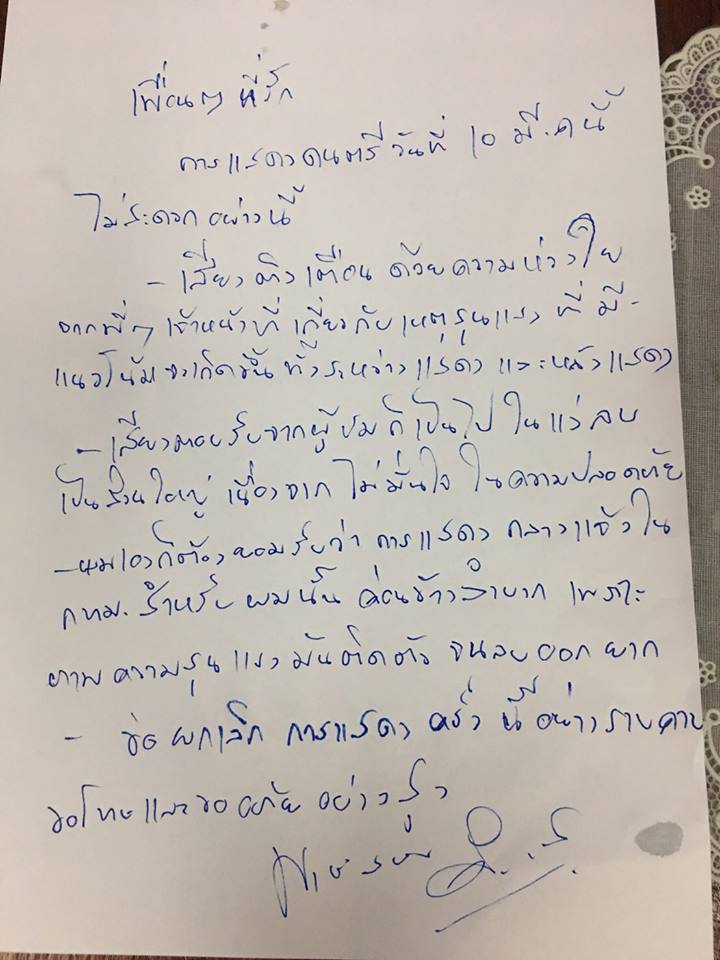 เพื่อนๆ ที่รัก
การแสดงดนตรี วันที่ 10 มี.ค นี้
ไม่สะดวกอย่างนี้
- เสียงติงเตือน ด้วยความห่วงใย
จากพี่ๆ เจ้าหน้าที่ เกี่ยวกับเหตุรุนแรง ที่ มี-
แนวโน้มจะเกิดขึ้น ทั้งระหว่างแสดง และหลังแสดง
- เสียงตอบรับจากผู้ชมก็เป็นไป ในแง่ลบ
เป็นส่วนใหญ่ เนื่องจาก ไม่มั่นใจ ในความปลอดภัย
- ผมเองก็ต้องยอมรับว่า การแสดง กลางแจ้งใน
กทม. สำหรับ ผมนั้น ค่อนข้างลำบาก เพราะ
ภาพความรุนแรง มันติดตัว จนลบออกยาก
- ขอ ยกเลิก การแสดง ครั้ง นี้อย่างราบคาบ
ขอโทษและขออภัย อย่างสูง